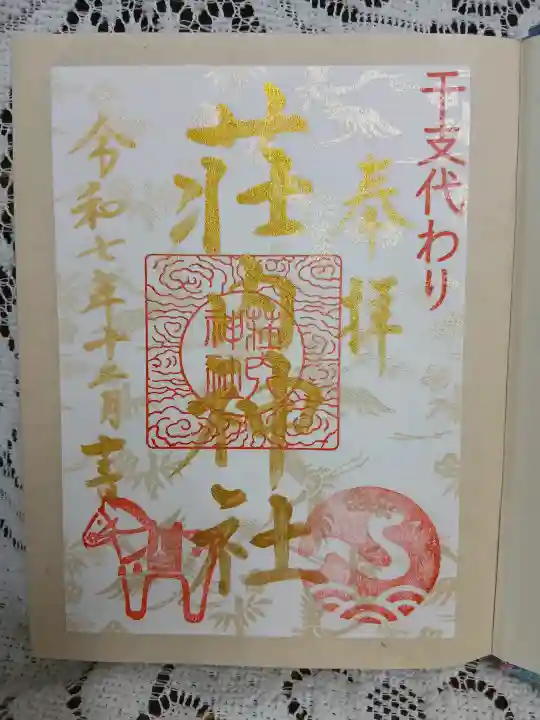 干支代わり
奉拝
荘内神社
荘内
神社
令和七年十二月